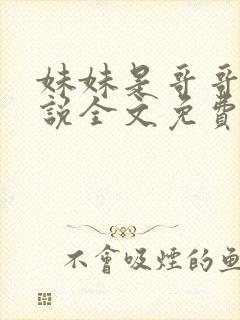 妹妹是哥哥
說全文免費
不會吸煙的魚